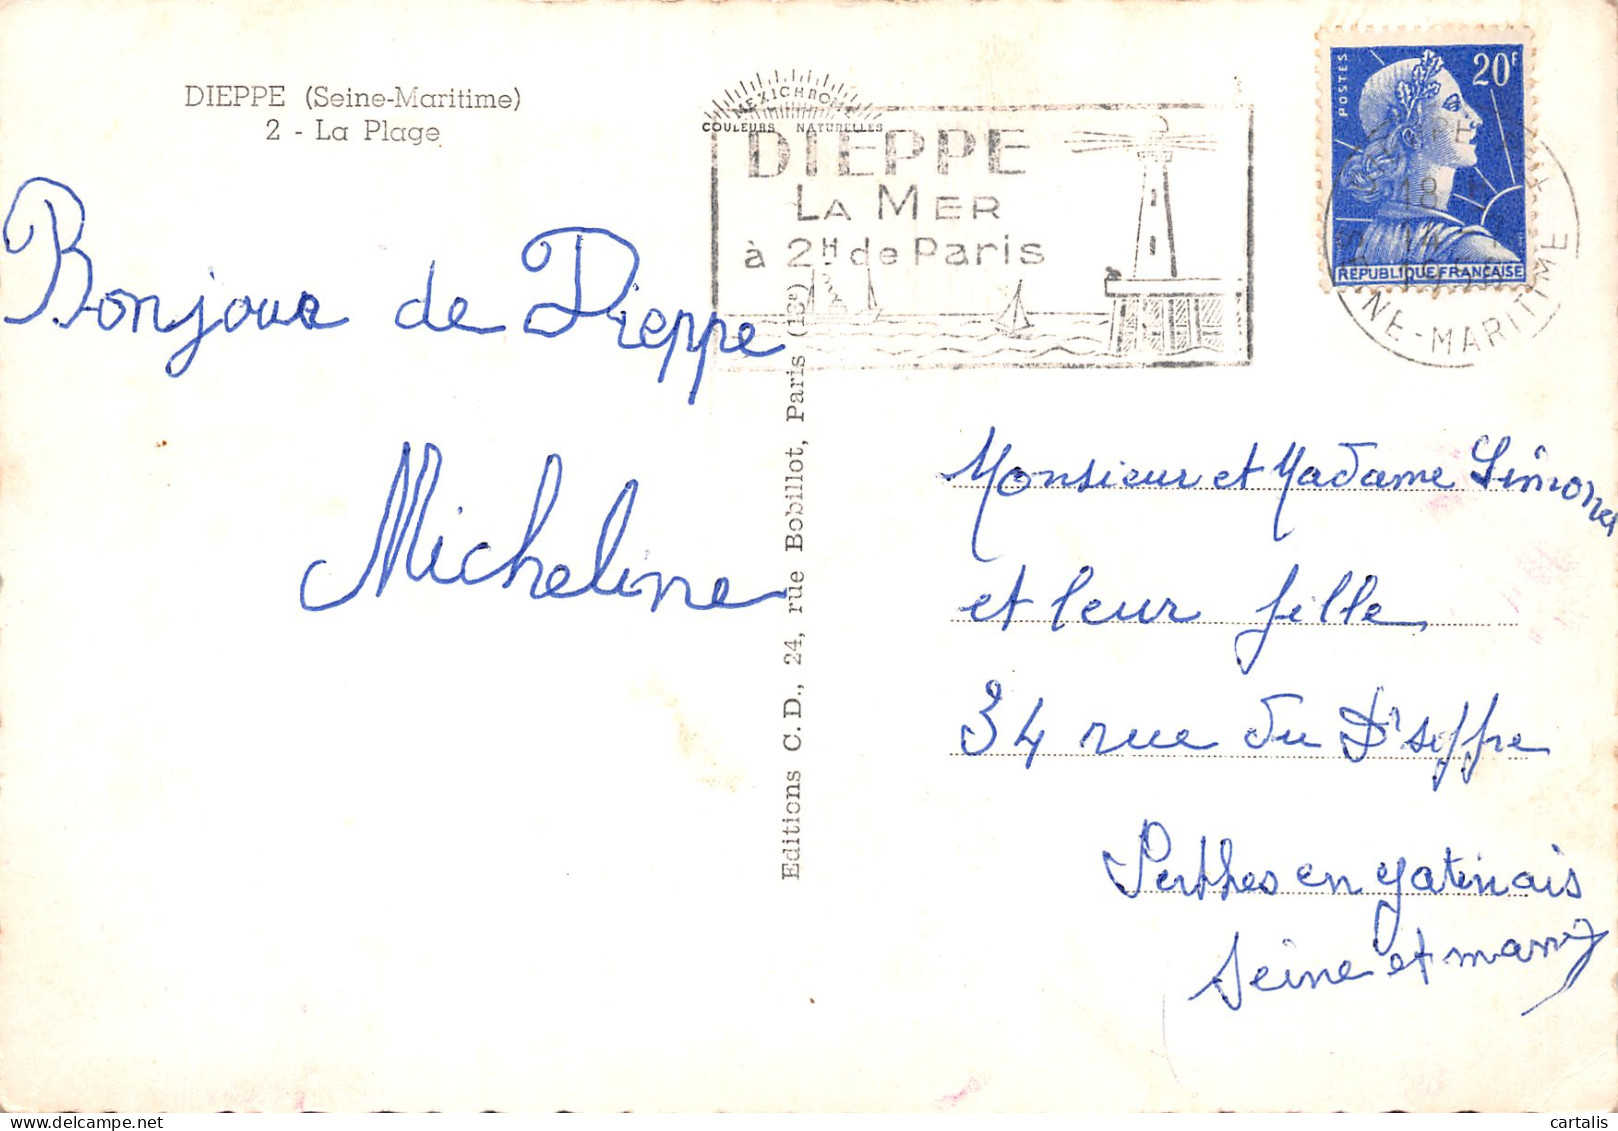 DIEPPE (Seine-Maritime)
2 - La Plage
MEXICHROME
COULEURS NATURELLES
DIEPPE
LA MER
à 2H de Paris
POSTES
20F
RÉPUBLIQUE FRANÇAISE
SEINE-MARITIME
Bonjour de Dieppe
Micheline
Editions C. D., 24, rue Bobillot, Paris (13e)
Monsieur et Madame
et leur fille
34 rue du Dr
Perthes en gatinais
Seine et marne
cartalis